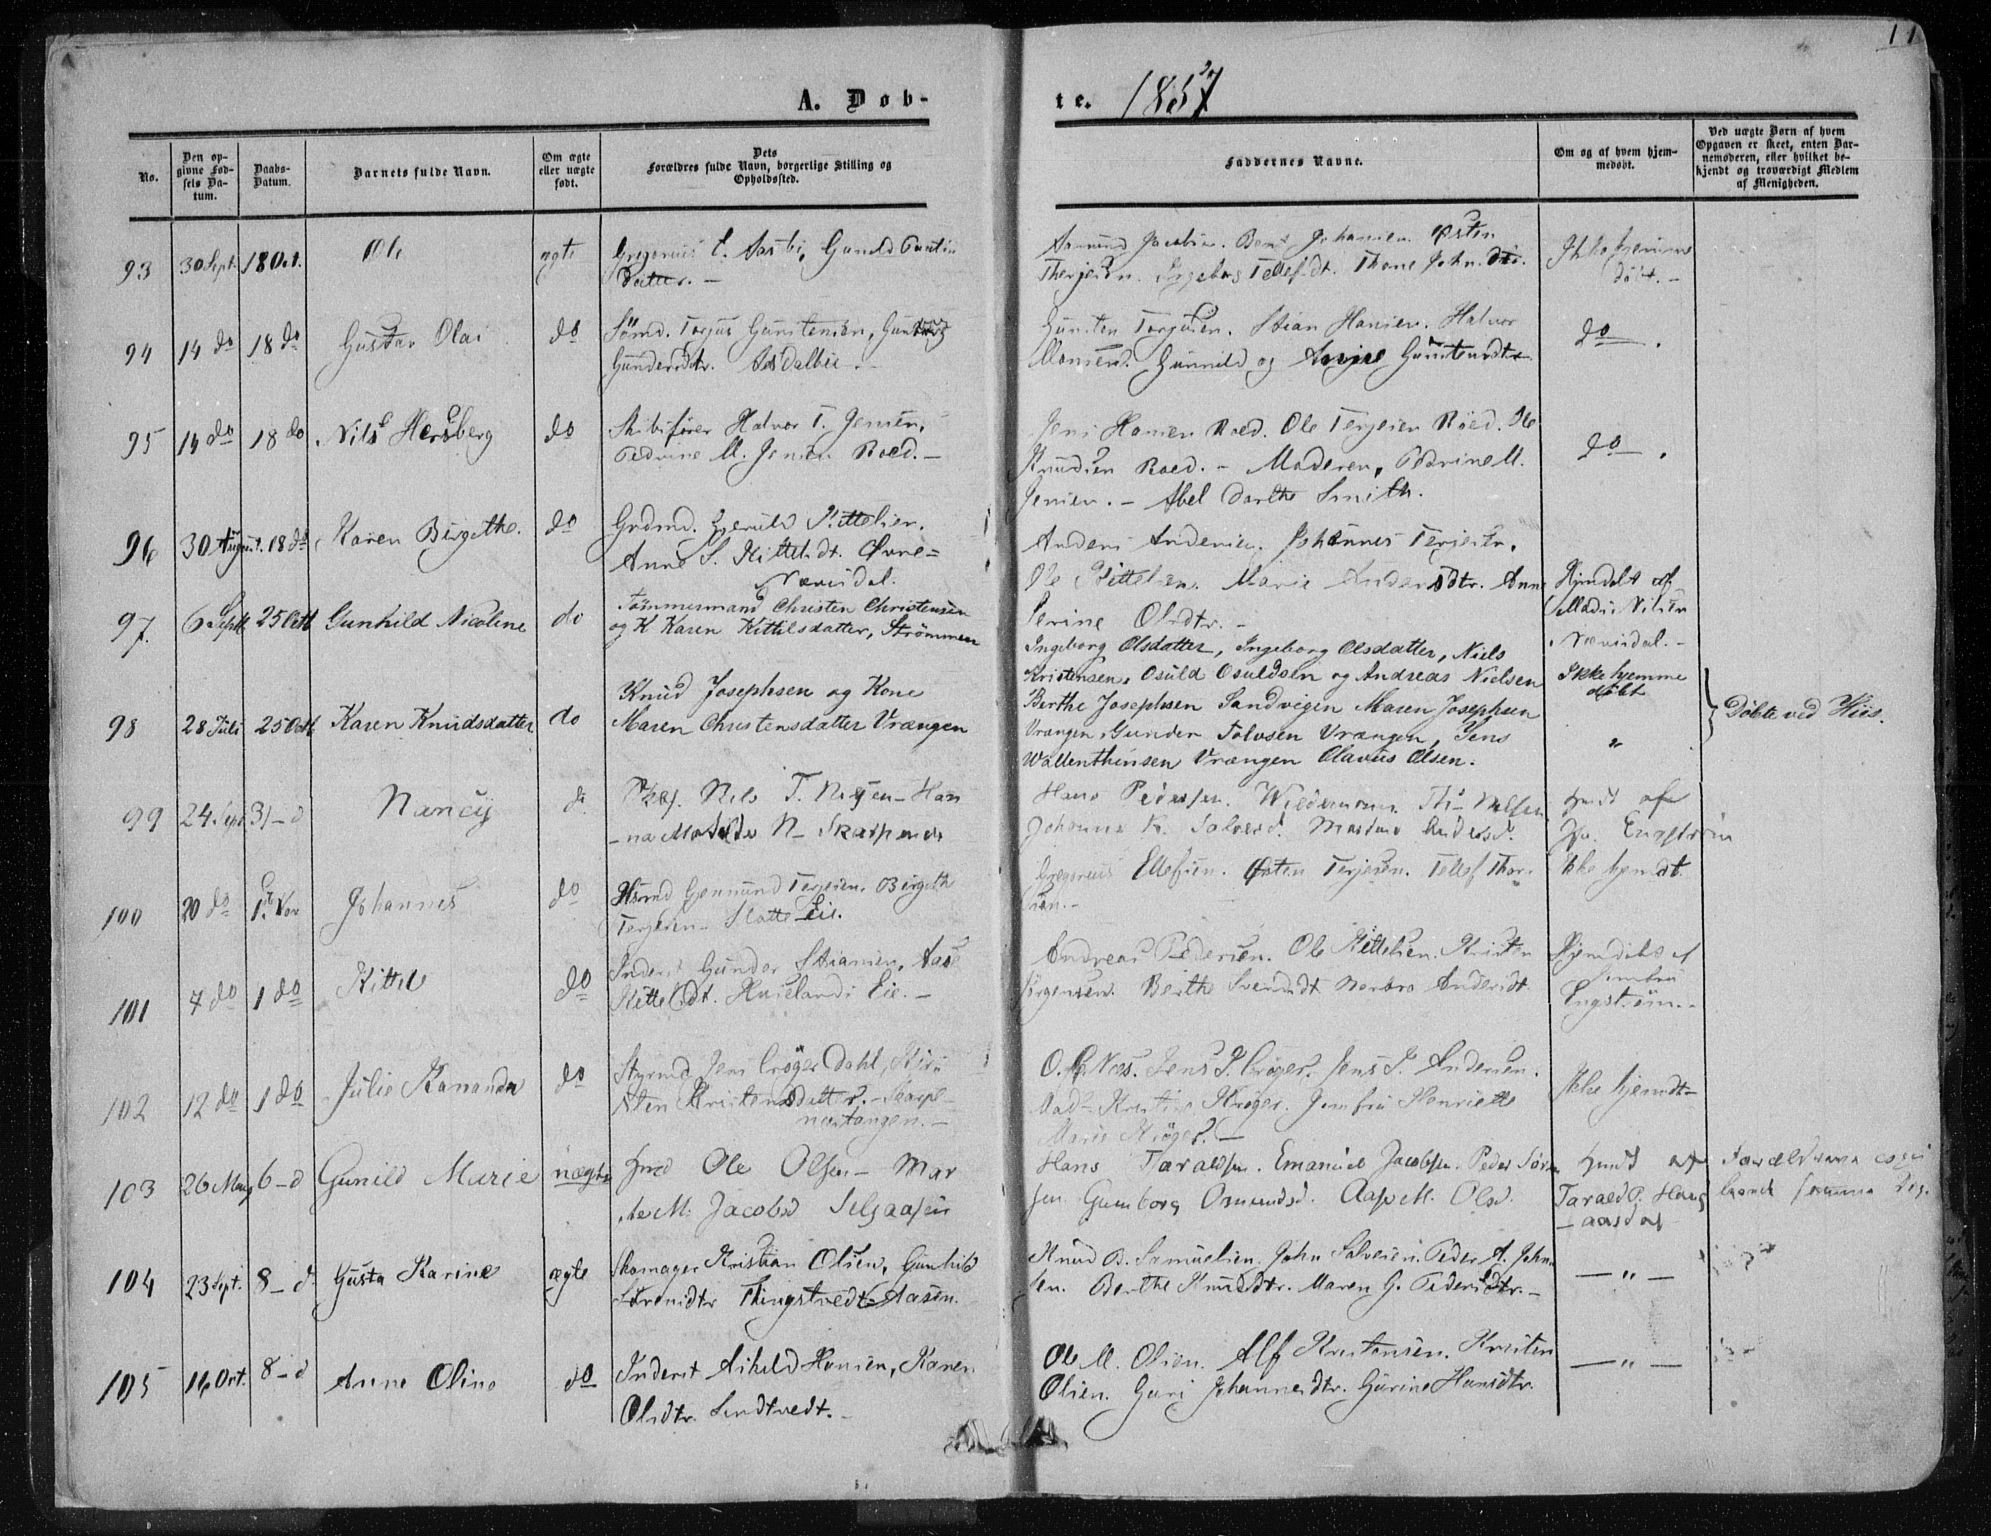 11
A. Døb-
te. 1857
No.
Den op-
givne Fød-
sels Da-
tum.
Daabs-
Datum.
Barnets fulde Navn.
Om ægte
eller uægte
født.
Dets
Forældres fulde Navn, borgerlige Stilling og
Opholdssted.
Faddernes Navne.
Om og af hvem hjem-
medøbt.
Ved uægte Børn af hvem
Opgaven er skeet, enten Bar-
nemoderen, eller hvilket be-
kjendt og troværdigt Medlem
af Menigheden.
93 30 Sept. 18 Oct. Ole ægte Gregorius E. Aasbi, Gunild
Datter. -
Aamund Jacobsen. Bent Johansen. Østen
Terjesen. Ingebor Tellefsdt. Thone Johnsdtr.
Ikke hjemme
døbt. -
94 14 do 18 do Gustav Olai do Sømd. Torjus Gunstensen,
Gundersdtr. Aasdalbie. -
Gunsten Torgusen. Stian Hansen. Halvor
Monsen. Gunnild og Anne Gunstensdtr
do .
95 14 do 18 do Nils Hersberg do Skibsfører Halvor T. Jensen,
Pedrine M. Jensen Roed. -
Jens Hansen Roed. Ole Terjesen Röed. Ole
Knudsen Roed. - Moderen, Pedrine M.
Jensen. - Abel Dorthe Smith.
do .
96 30 August. 18 do Karen Birgithe. do Grdmd. Kittelsen.
Anne S. Kittelsdt. Øvre=
Nævisdal.
Anders Andersen. Johannes Terjesen.
Ole Kittelsen. Marie Andersdtr. Anne
Serine Olsdtr. -
Hjemdøbt af
Mads Nilsen
Nævisdal. -
97. 6 Septb 25 Octb Gunhild Nicoline do Tömmermand Christen Christensen
og K Karen Kittilsdatter, Strömmen
Ingeborg Olsdatter, Ingeborg Olsdatter, Niels
Kristensen, Osuld Osuldsen og Andreas Nielsen
Ikke hjemme
døbt
98 28 Juli 25 Octb Karen Knudsdatter do Knud Josephsen og Kone
Maren Christensdatter Vrængen
Berthe Josephsen Sandvigen Maren Josephsen
Vrængen Gunder Tolvsen Vrængen, Jens
Wallenthinsen Vrængen Olavus Olsen.
"
Døbte ved Hiis.
99 24 Sept 31 - d Nancy do Nils T. Nilsen - Han
- na Matilde N - Skarpenes
Hans Pedersen. Nilsen
Johanne K. Salvesd.
hjmdt af
Engström
100 20 do 1ste Nov Johannes do Hsmd Gjermund Terjesen. Birgith
Terjesen - Slotte Eie.
Gregorius Ellefsen. Østen Terjesen. Tellef Thor-
sen. -
Ikke hjemdt.
101 7 do 1 do Kittel do Inderst Gunder Stiansen, Aase
Kittelsdt. Huselands Eie. -
Andreas Pedersen. Ole Kittelsen. Kristen
Jörgensen. Berthe Svendsdt Andersdt.
Hjemdøbt af
Jomfru
Engström. -
102 12 do 1 do Julie Kananda do Styrmd Jens Crøger Dahl,
Kristensdatter. - Skarp-
næstangen. -
O. P. Næs. Jens P. Crøger. Jens J. Andersen.
Mad= Kristine Krøger. Jomfru Henriette
Marie Krøger. -
Ikke hjemdt -
103 26 6 - d Gunild Marie uægte Ole Olsen - Mar
- te M. Jacobsd Selaasen
Hans Taraldsen. Emanuel Jacobsen. Peder Sörn
sen Gunborg Osmundsd. Aase M. Olsd.
hjmdt af
Tarald P. Haug
- aasdal
104 23 Sept. 8 - d Gusta Karine ægte Skomager Kristian Olsen, Gunhild
Sørensdtr Tingstvedt Aasen.
Knud B. Samuelsen. John Salvesen. Peder A. John
sen. Berthe Knudsdtr. Maren G. Pedersdtr. -
- " -
105 16 Oct. 8 - d Anne Oline do Inderst Askeld Hansen, Karen
Olsdtr. Sendtvedt. -
Ole M. Olsen. Alf Kristensen. Kristen
Olsen. Guri Johannesdtr. Gurine Hansdtr.
- " -